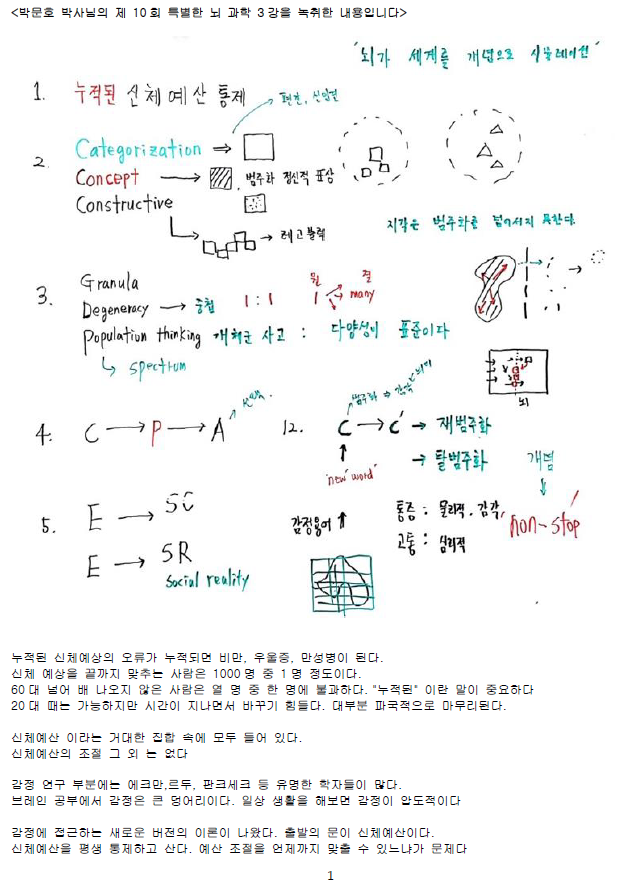 <박문호 박사님의 제 10회 특별한 뇌 과학 3강을 녹취한 내용입니다>
"뇌가 세계를 개념으로 시뮬레이션"
1. 누적된 신체 예산 통제
편견, 선입견
2. Categorization ⇒
Concept → , 범주화 정신적 표상
Constructive
→ 레고블럭
지각은 범주화를 넘어서지 못한다.
3. Granula
Degeneracy → 중첩 1:1 원 1 결 many
Population thinking 개체군 사고 : 다양성이 표준이다
spectrum
뇌
4. C → P → A
12. C → C' → 재범주화
→ 탈범주화
"new word"
개념
non-stop
5. E → SC
E → SR
social reality
감정용어 ↑
통증 : 물리적. 감각,
고통 : 심리적
누적된 신체예상의 오류가 누적되면 비만, 우울증, 만성병이 된다.
신체 예상을 끝까지 맞추는 사람은 1000명 중 1명 정도이다.
60대 넘어 배 나오지 않은 사람은 열 명 중 한 명에 불과하다. "누적된" 이란 말이 중요하다
20대 때는 가능하지만 시간이 지나면서 바꾸기 힘들다. 대부분 파국적으로 마무리된다.
신체예산 이라는 거대한 집합 속에 모두 들어 있다.
신체예산의 조절 그 외 는 없다
감정 연구 부분에는 에크만,르두, 판크세크 등 유명한 학자들이 많다.
브레인 공부에서 감정은 큰 덩어리이다. 일상 생활을 해보면 감정이 압도적이다
감정에 접근하는 새로운 버전의 이론이 나왔다. 출발의 문이 신체예산이다.
신체예산을 평생 통제하고 산다. 예산 조절을 언제까지 맞출 수 있느냐가 문제다
1